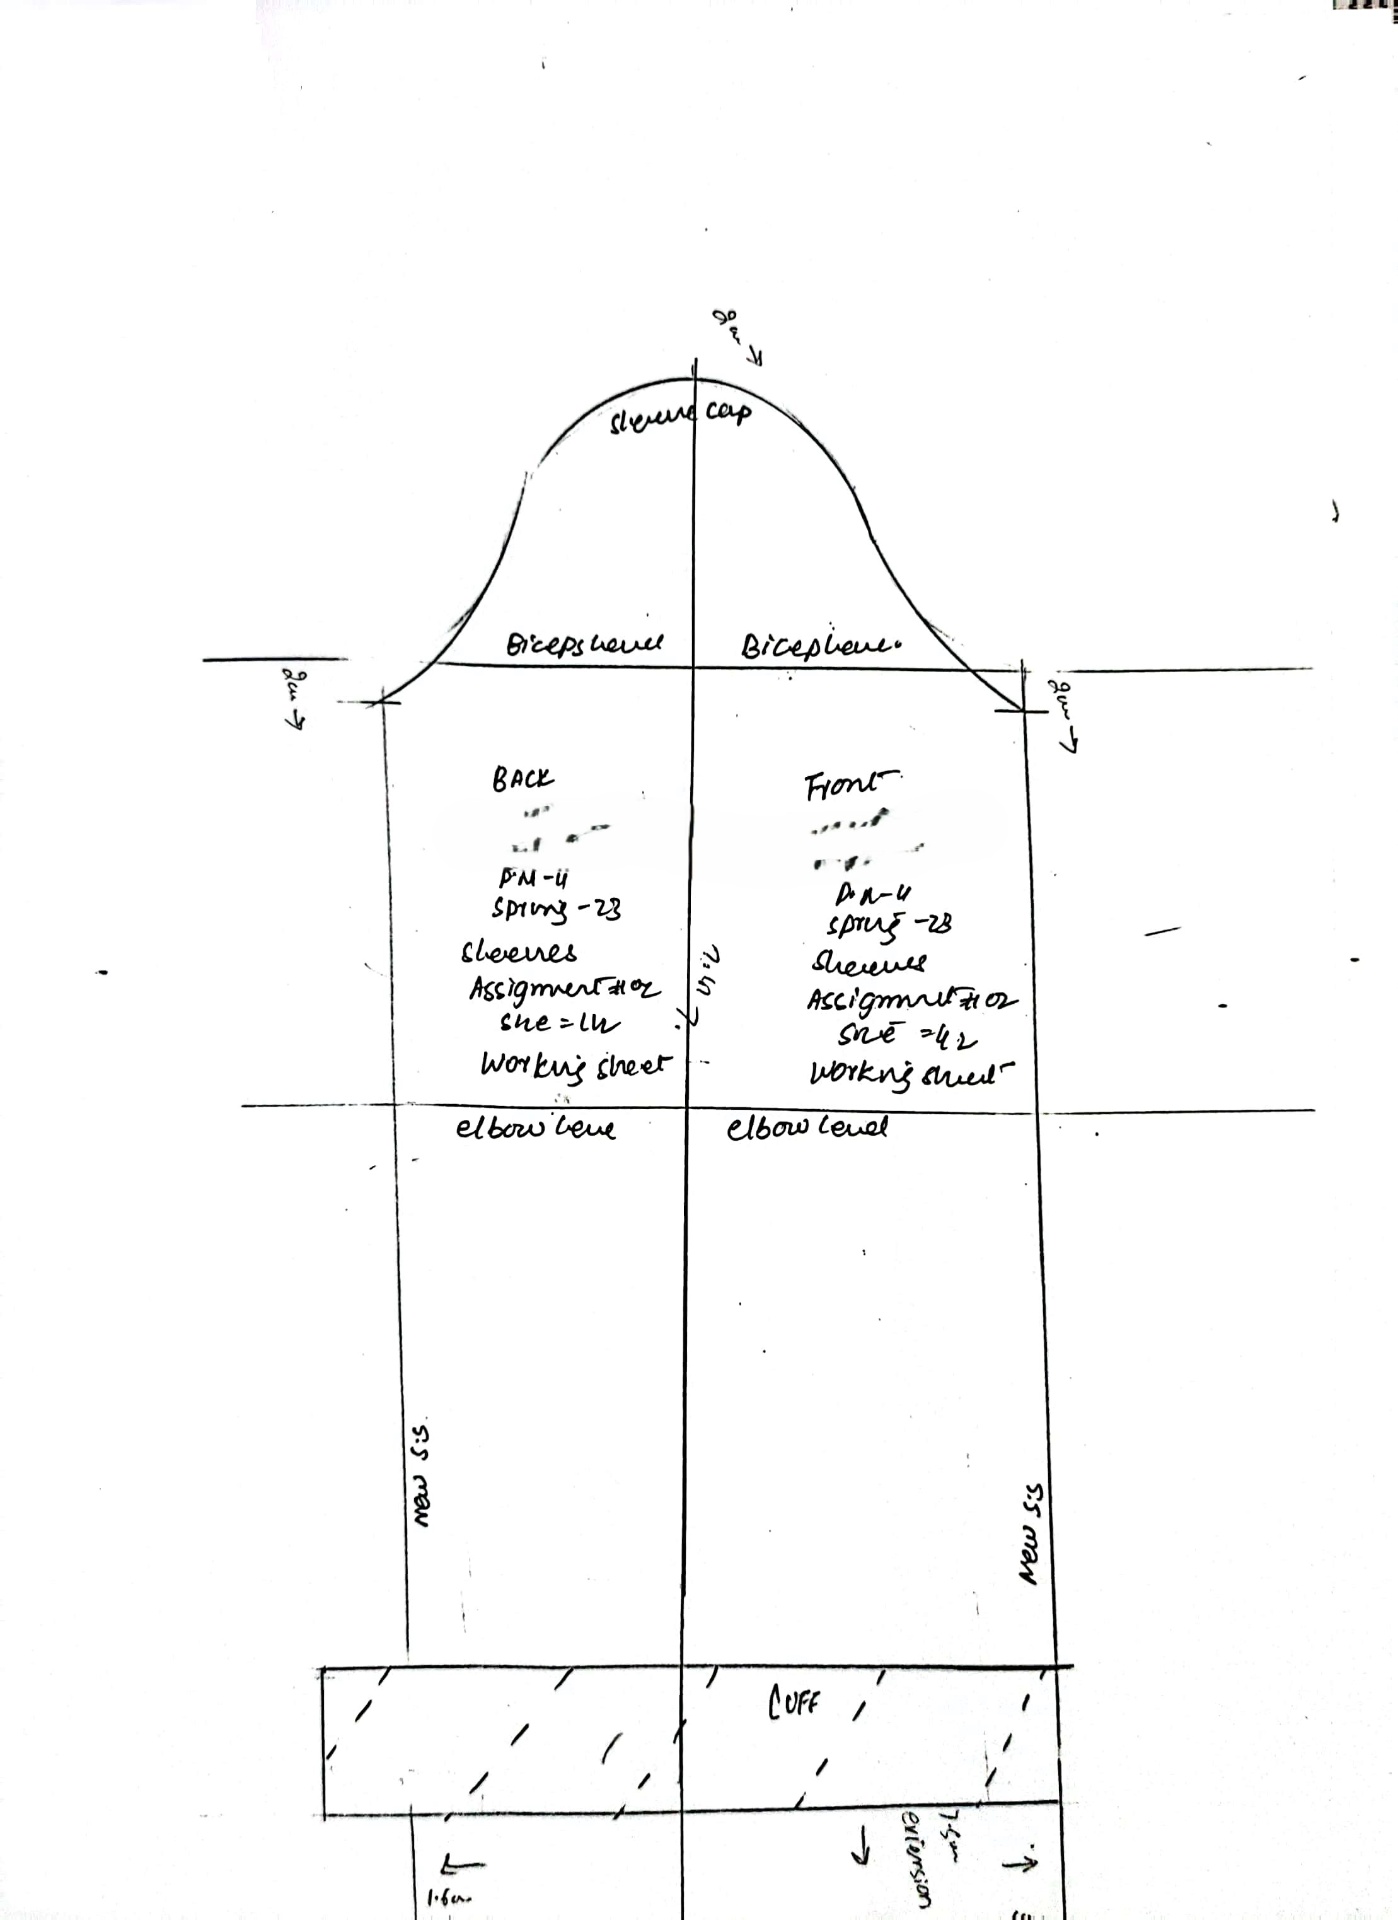 2cm →
Sleeve cap
Biceps level
Bicep leve.
2cm →
2cm →
BACK
P.M-4
Spring-23
Sleeves
Assignment #02
Working sheet
Front
P.M-4
Spring-23
Sleeves
Assignment #02
Size = 42
Working sheet
elbow leve
elbow level
New S.S.
New S.S
CUFF
7.5cm
extension